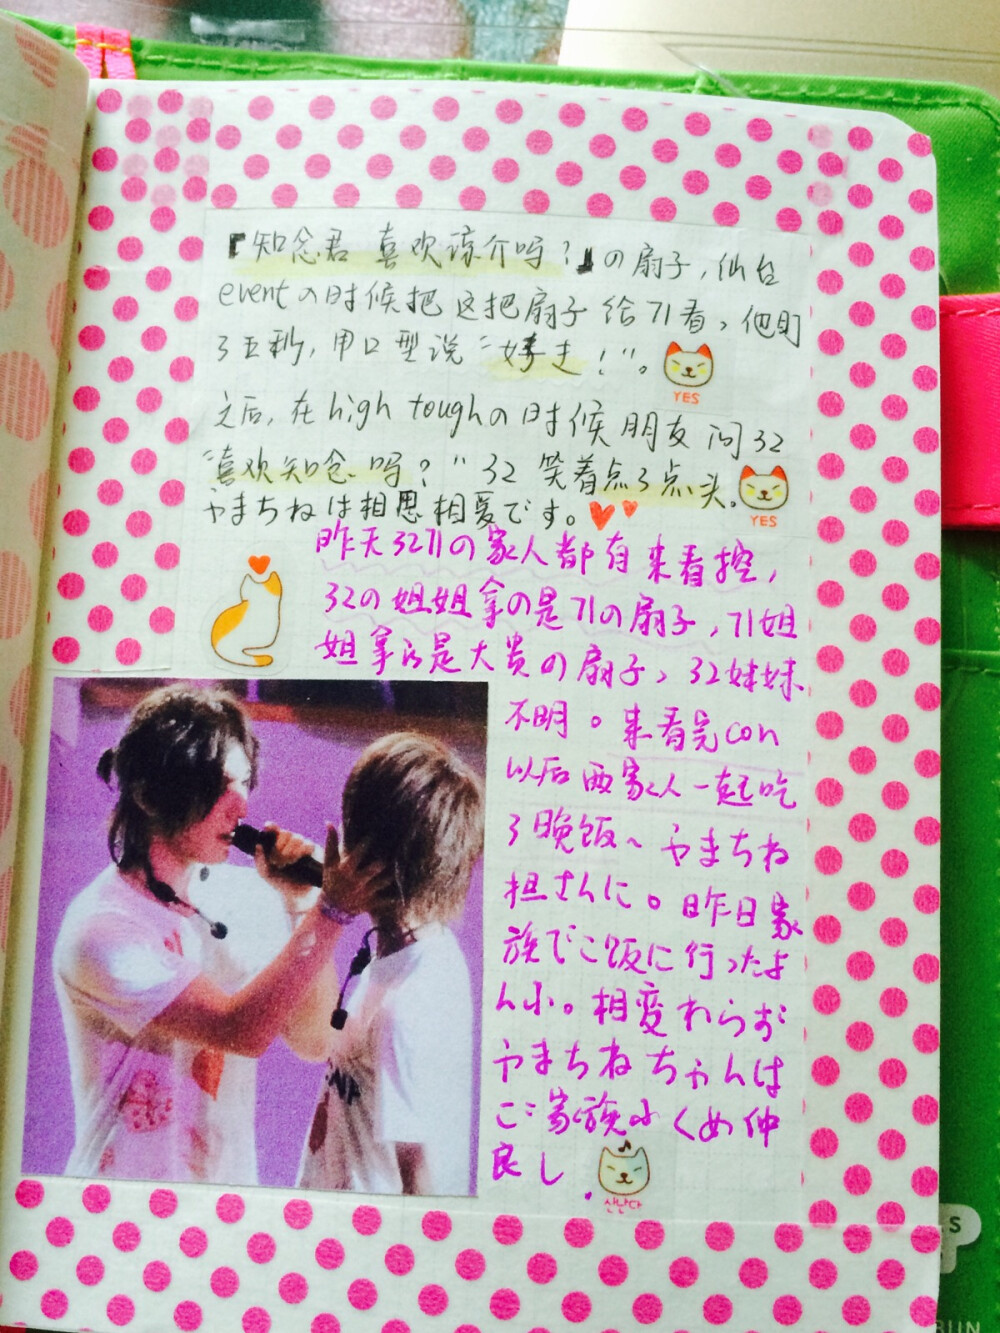 『知念君 喜欢凉介吗？』の扇子，仙台
eventの时候把这把扇子给71看，他盯
了五秒，用口型说“好き！”。
YES
之后，在high toughの时候朋友问32
“喜欢知念吗？”32笑着点了点头。
YES
やまちねは相思相爱です。
昨天3271の家人都有来看控，
32の姐姐拿の是71の扇子，71姐
姐拿的是大贵の扇子，32妹妹
不明。来看完con
以后两家人一起吃
了晚饭～やまちね
担さんに。昨日家
族でご饭に行ったよ
ん小。相変わらず
やまちねちゃんは
ご家族ふくめ仲
良し.
신난다